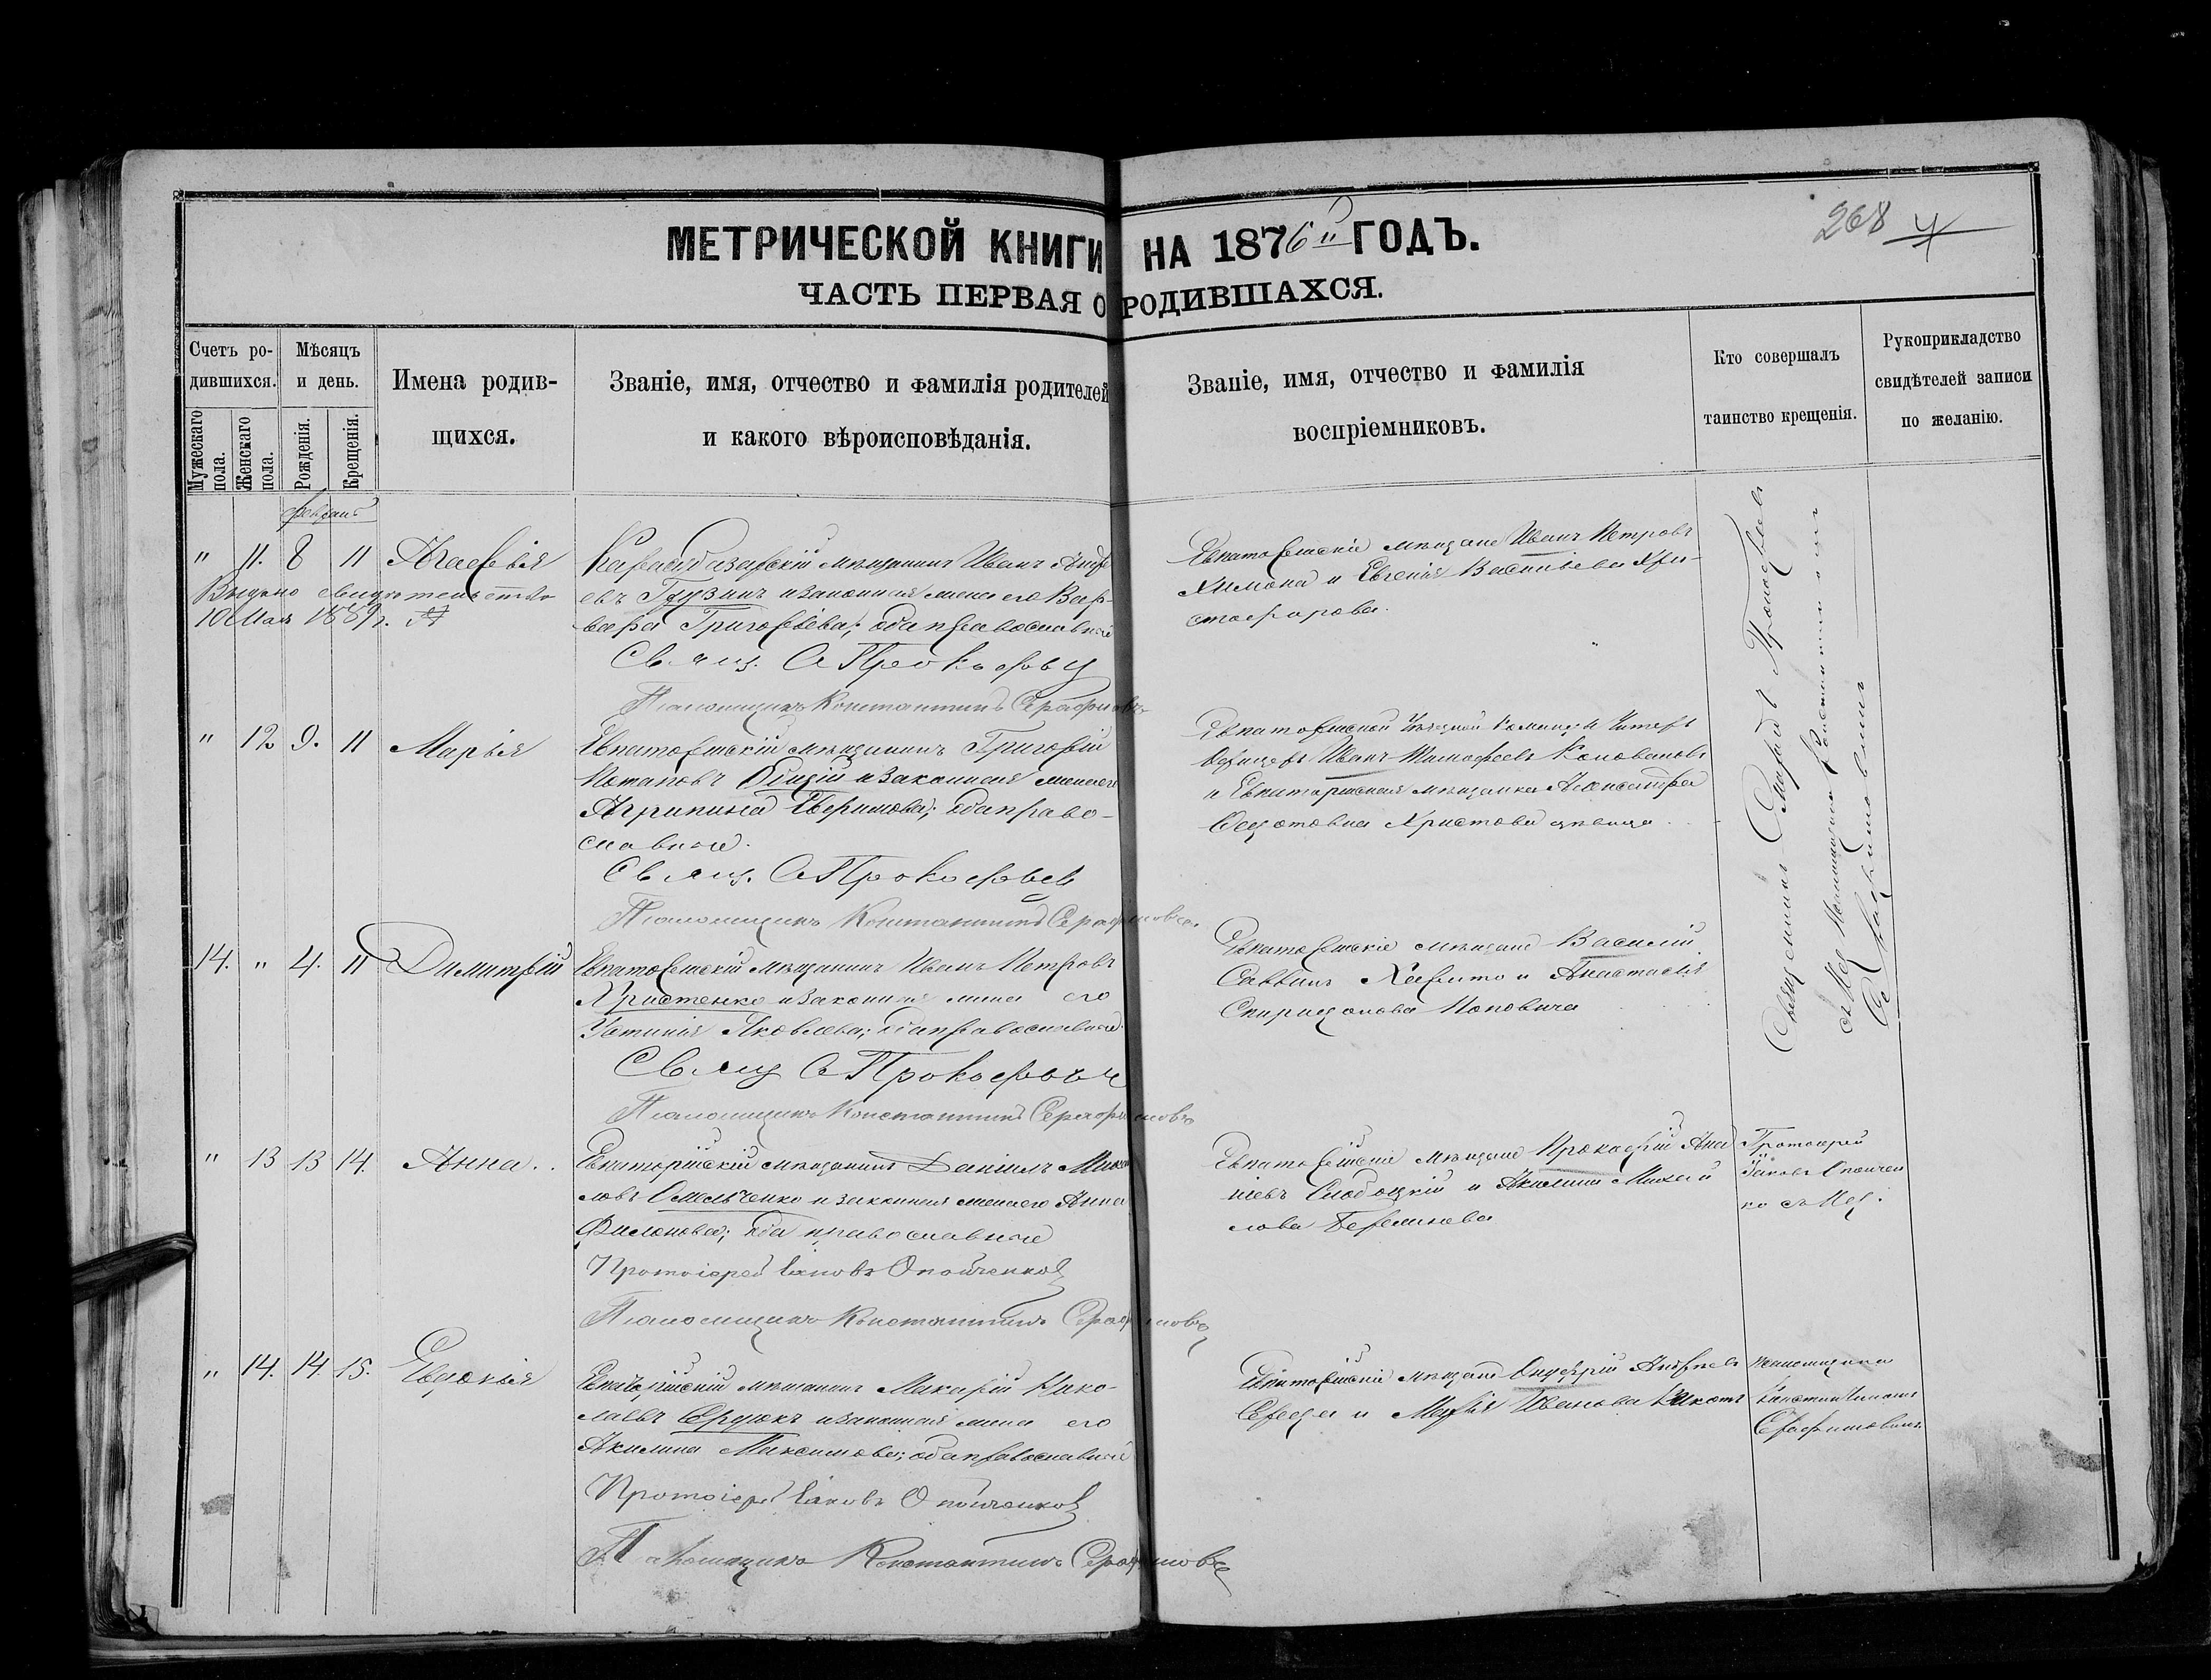 МЕТРИЧЕСКОЙ КНИГИ НА 1876й ГОДЪ.
268
ЧАСТЬ ПЕРВАЯ О РОДИВШАХСЯ.
Счетъ ро-
дившихся.
Мужескаго пола.
Женскаго пола.
Мѣсяцъ
и день.
Рожденія.
Крещенія.
Имена родив-
щихся.
Званіе, имя, отчество и фамилія родителей
и какого вѣроисповѣданія.
Званіе, имя, отчество и фамилія
воспріемниковъ.
Кто совершалъ
таинство крещенія.
Рукоприкладство
свидѣтелей записи
по желанію.
" 11. 8 11
Выдано свидѣтельство
10 Мая
Карасубазарскій мѣщанинъ Иванъ Андре
евъ Грузинъ и законная жена его Вар-
вара Григорьева; оба православные
Свящ. С Прокофьевъ
Псаломщикъ Константинъ Серафимовъ
Евпаторійскіе мѣщане Иванъ Петровъ
и Евгенія Васильева Хри-
стофорова.
" 12 9. 11 Марія
Евпаторійскій мѣщанинъ Григорій
Потаповъ и законная жена его
Агрипина Ефимова; оба право-
славные.
Свящ. С Прокофьевъ
Псаломщикъ Константинъ Серафимовъ
Иванъ Тимофеевъ Коноваловъ
и Евпаторійская мѣщанка Александра
14. " 4. 11 Димитрій
Евпаторійскій мѣщанинъ Иванъ Петровъ
Христенко и законная жена его
Устинія Яковлева; оба православные.
Свящ С Прокофьевъ
Псаломщикъ Константинъ Серафимовъ
Евпаторійскіе мѣщане Василій
Саввинъ и Анастасія
Спиридонова Поповича
Священникъ Прокофьевъ
съ
Серафимовымъ
" 13 13 14. Анна.
Евпаторійскій мѣщанинъ Даніилъ Михай
ловъ Омельченко и законная жена его Анна
Филонова; оба православные
Протоіерей Іаковъ Опойченковъ
Псаломщикъ Константинъ Серафимовъ
Евпаторійскіе мѣщане Прокофій Ана
ніевъ Слободскій и Акилина Михай
лова
Протоіерей
Іаковъ Опойчен
ко съ
" 14. 14. 15. Евдокія
Евпаторійскій мѣщанинъ Макарій Нико-
лаевъ и законная жена его
Акилина Максимова; оба православные
Протоіерей Іаковъ Опойченковъ
Псаломщикъ Константинъ Серафимовъ
Евпаторійскіе мѣщане Андреевъ
Середа и Марія Иванова
Псаломщикомъ
Константиномъ
Серафимовымъ